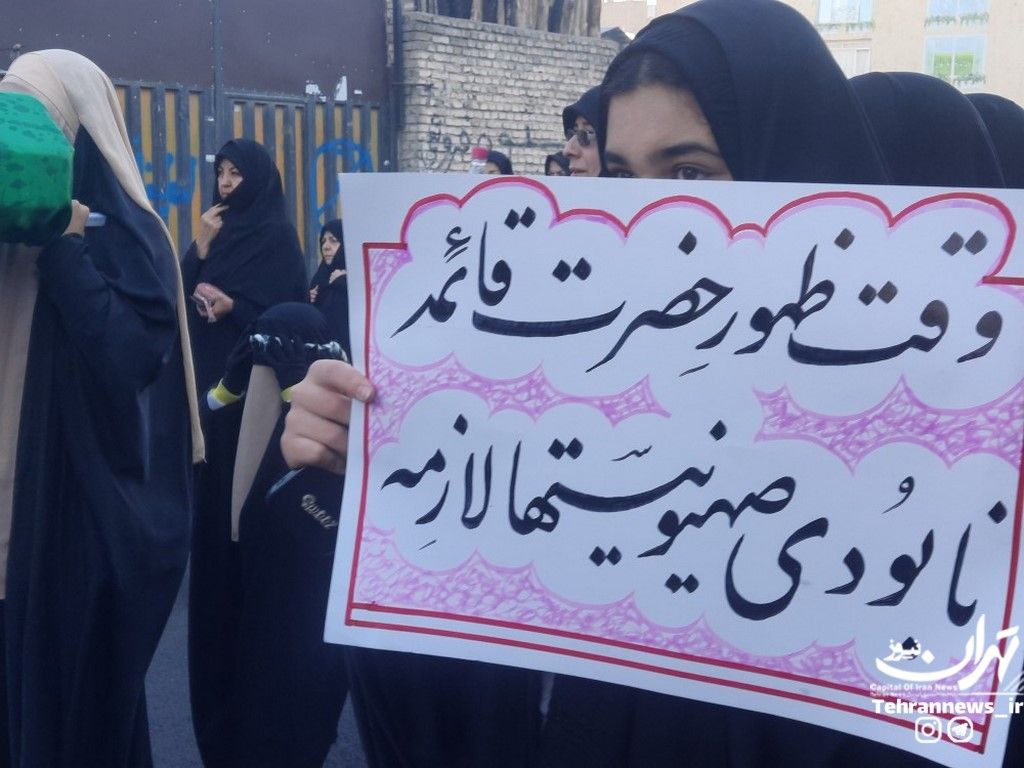 وقت ظهورِ حضرت قائمد
نابُودی صهیونیستها لازِمه
تهران نیوز
Capital Of Iran News
Tehrannews_ir